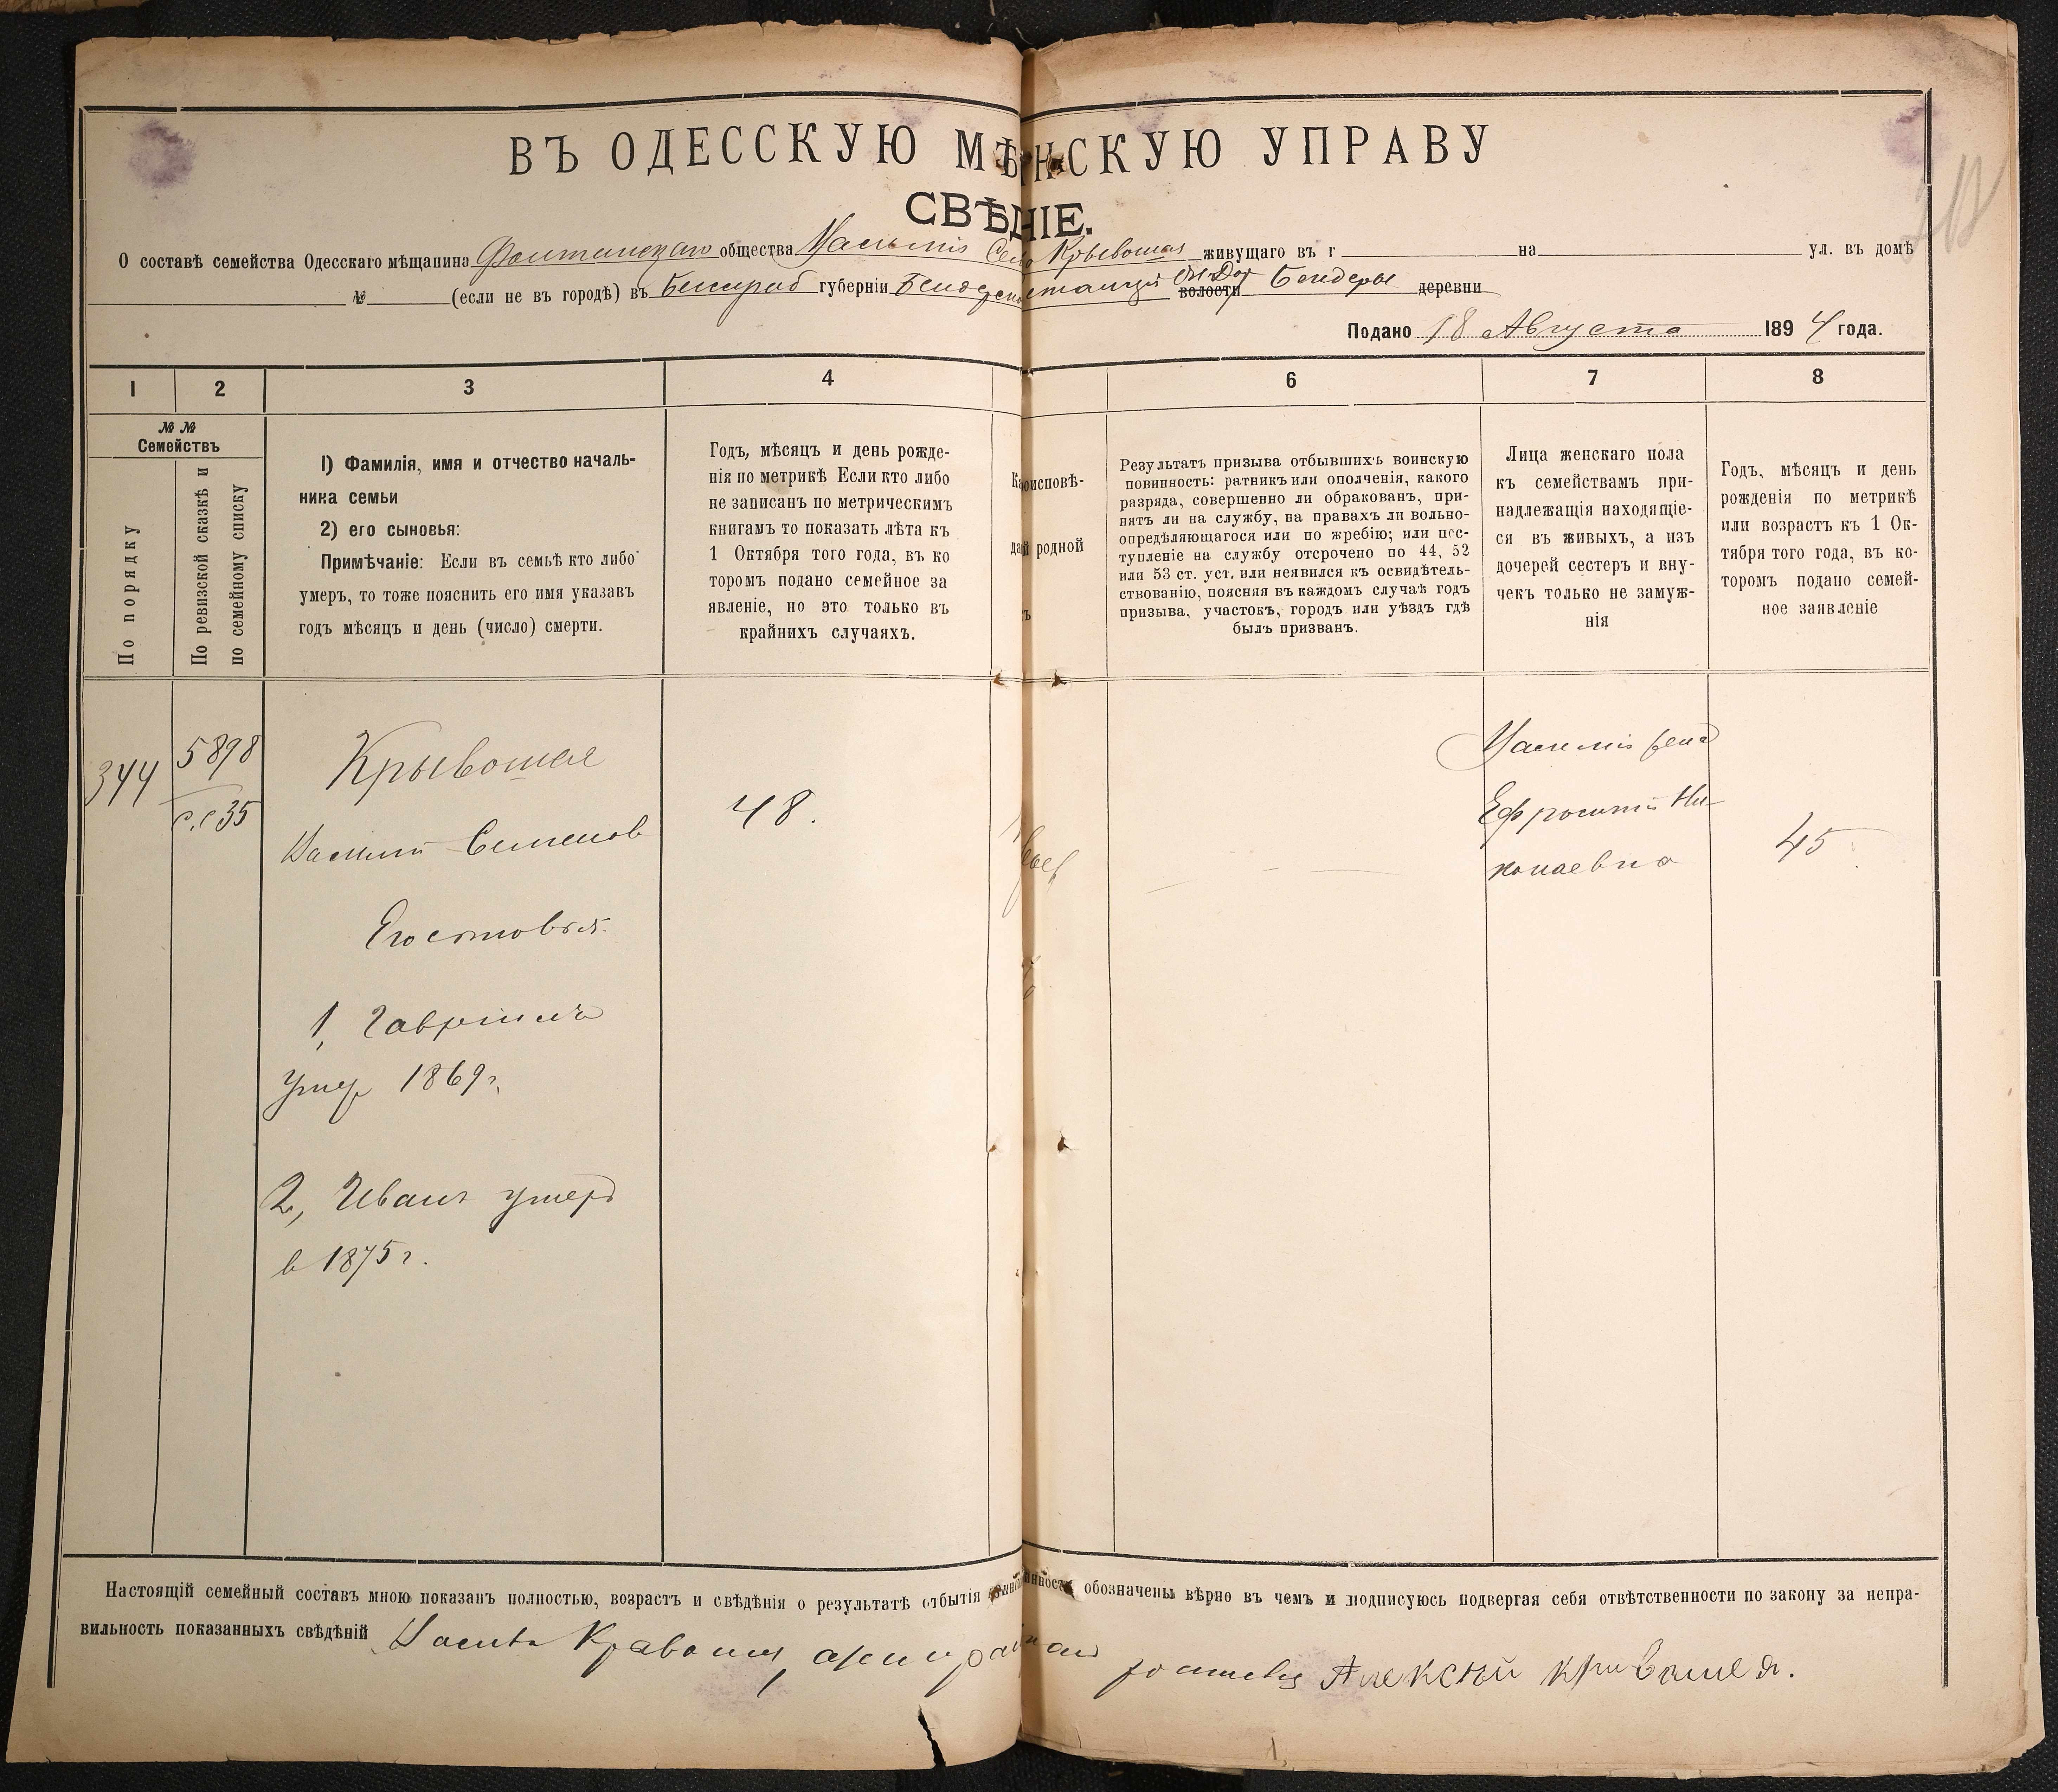 ВЪ ОДЕССКУЮ МѢ НСКУЮ УПРАВУ
СВѢД НІЕ.
О составѣ семейства Одесскаго мѣщанина Фонтанскаго общества Крывошея живущаго въ г на ул. въ домѣ
№ (если не въ городѣ) въ Бессараб губерніи волости Бендеры деревни
Подано 18 Августа 1894 года.
1 2 3 4 6 7 8
№№
Семействъ
По порядку
По ревизской сказкѣ и
по семейному списку
1) Фамилія, имя и отчество началь-
ника семьи
2) его сыновья:
Примѣчаніе: Если въ семьѣ кто либо
умеръ, то тоже пояснить его имя указавъ
годъ мѣсяцъ и день (число) смерти.
Годъ, мѣсяцъ и день рожде-
нія по метрикѣ Если кто либо
не записан по метрическимъ
книгамъ то показать лѣта къ
1 Октября того года, въ ко
торомъ подано семейное за
явленіе, но это только въ
крайнихъ случаяхъ.
оисповѣ-
й родной
Результатъ призыва отбывшихъ воинскую
повинность: ратникъ или ополченія, какого
разряда, совершенно ли обракованъ, при-
нятъ ли на службу, на правахъ ли вольно-
опредѣляющагося или по жребію; или пос-
тупленіе на службу отсрочено по 44, 52
или 53 ст. уст. или неявился къ освидѣтель-
ствованію, поясняя въ каждомъ случаѣ годъ
призыва, участокъ, городъ или уѣздъ гдѣ
былъ призванъ.
Лица женскаго пола
къ семействамъ при-
надлежащія находящіе-
ся въ живыхъ, а изъ
дочерей сестеръ и вну-
чекъ только не замуж-
нія
Годъ, мѣсяцъ и день
рожденія по метрикѣ
или возрастъ къ 1 Ок-
тября того года, въ ко-
торомъ подано семей-
ное заявленіе
344
5898
с.с 35
Крывошея
Василий Семенов
Его сыновья:
1, Гавриилъ
умер 1869 г.
2, Иванъ умеръ
в 1875 г.
48.
Василія жена
Ефросинія Ни-
колаевна
45
Настоящій семейный составъ мною показанъ полностью, возрастъ и свѣдѣнія о результатѣ отбытія обозначены вѣрно въ чемъ и подписуюсь подвергая себя отвѣтственности по закону за непра-
вильность показанныхъ свѣдѣній Алексѣй кривошея.